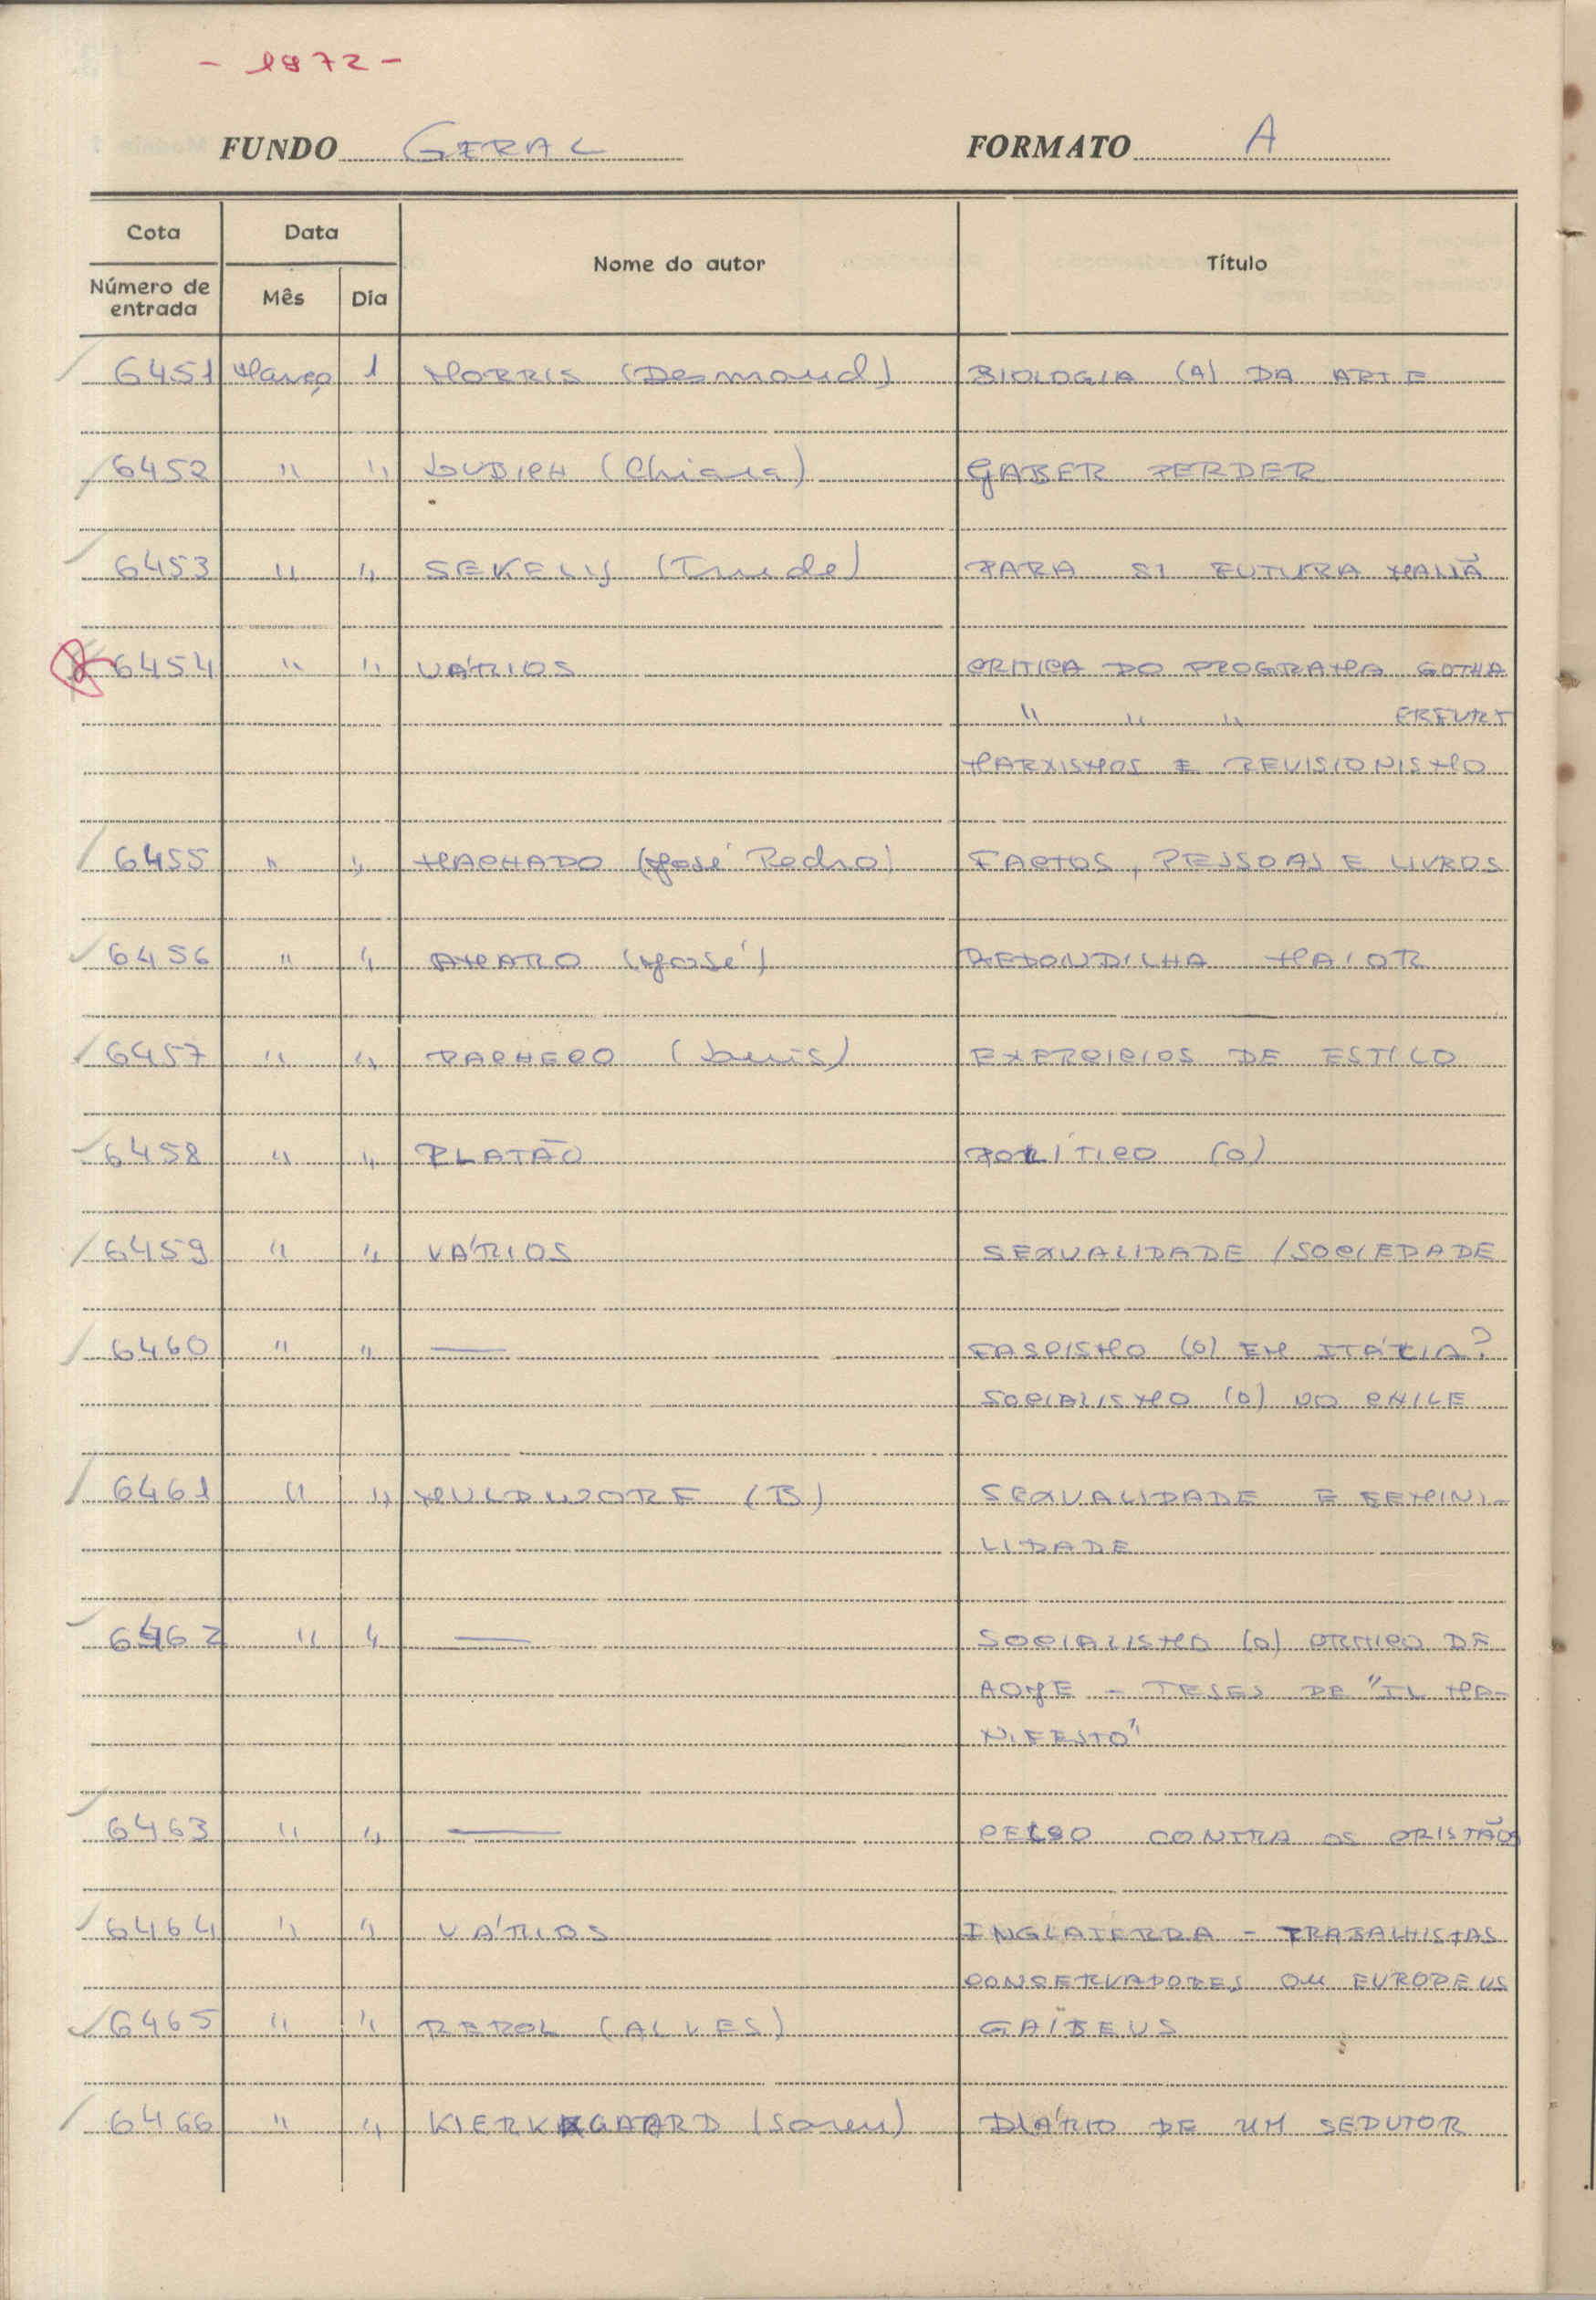 - 1972 -
FUNDO GERAL FORMATO A
Cota Data Nome do autor Título
Número de entrada Mês Dia
6451 Março 1 MORRIS (Desmond) BIOLOGIA (A) DA ARTE
6452 " " LUBICH (Chiara) SABER PERDER
6453 " " SEKELY (Trude) PARA SI FUTURA MAMÃ
6454 " " VÁRIOS CRITICA DO PROGRAMA GOTHA
" " " ERFURT
MARXISMOS E REVISIONISMO
6455 " " MACHADO (José Pedro) FACTOS, PESSOAS E LIVROS
6456 " " AMARO (José) REDONDILHA MAIOR
6457 " " PACHECO (Luis) EXERCICIOS DE ESTILO
6458 " " PLATÃO POLÍTICO (O)
6459 " " VÁRIOS SEXUALIDADE / SOCIEDADE
6460 " " — FASCISMO (O) EM ITÁLIA?
SOCIALISMO (O) NO CHILE
6461 " " MULDWORF (B) SEXUALIDADE E FEMINI-
LIDADE
6462 " " — SOCIALISMO (O) CRMICO DE
AOJE - TESES DE "IL MA-
NIFESTO"
6463 " " — CELSO CONTRA OS CRISTÃOS
6464 " " VÁRIOS INGLATERRA - TRABALHISTAS
CONSERVADORES OU EUROPEUS
6465 " " REDOL (ALVES) GAÏBEUS
6466 " " KIERKGAARD (Soren) DIÁRIO DE UM SEDUTOR